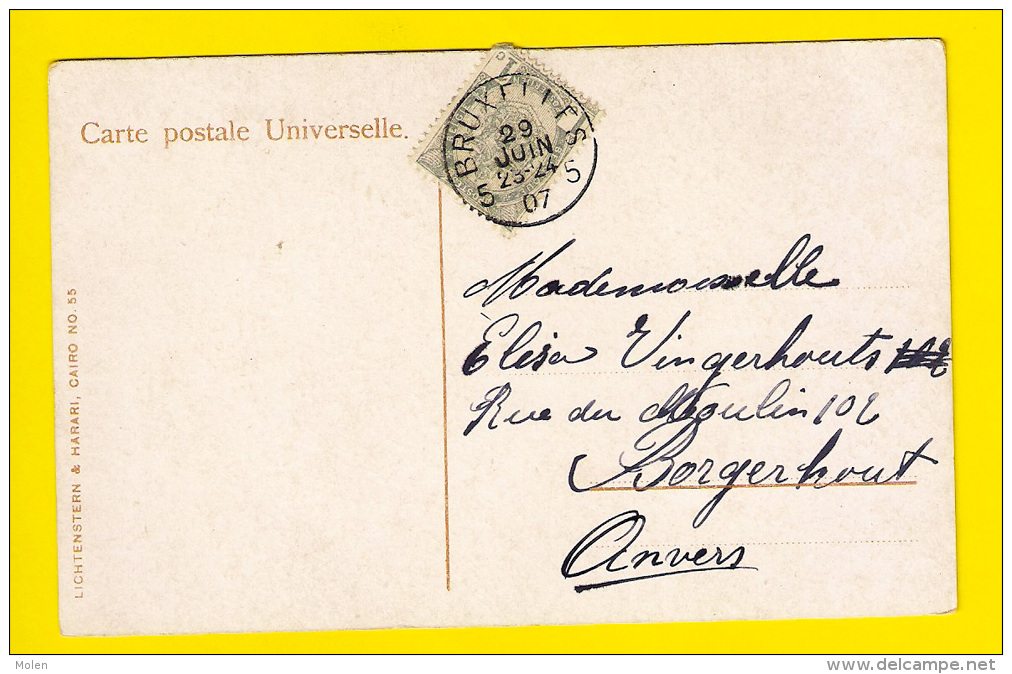 Carte postale Universelle.
BRUXELLES
29
JUIN
23-24
5 5
07
Mademoiselle
Elisa Vingerhouts
Rue du Moulin 102
Borgerhout
Anvers
LICHTENSTERN & HARARI, CAIRO NO. 55
Molen
delcampe.net